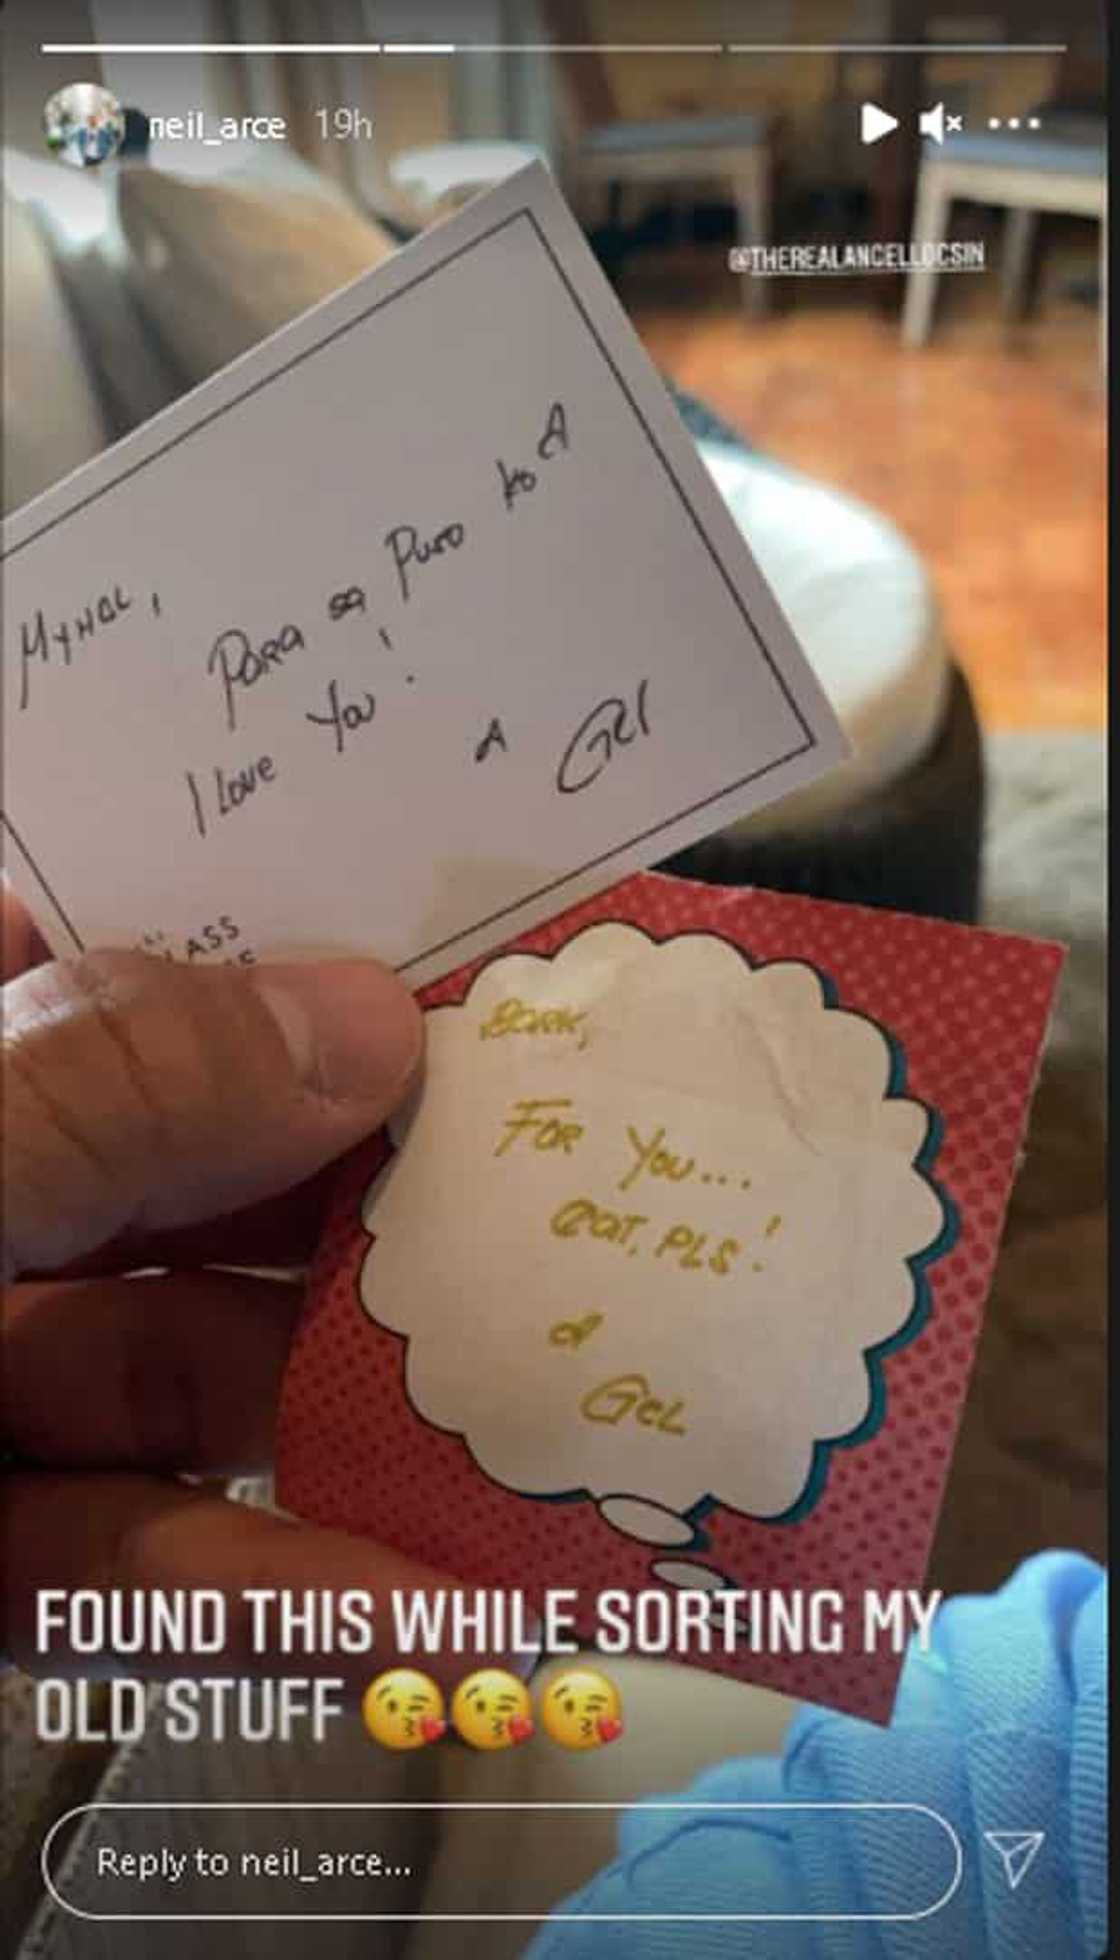 neil_arce 19h
@THEREALANGELLOCSIN
MYHAL,
Para sa Puso ko
I Love You!
Gel
LASS
For You...
eat, PLS!
Gel
FOUND THIS WHILE SORTING MY
OLD STUFF 😘😘😘
Reply to neil_arce...